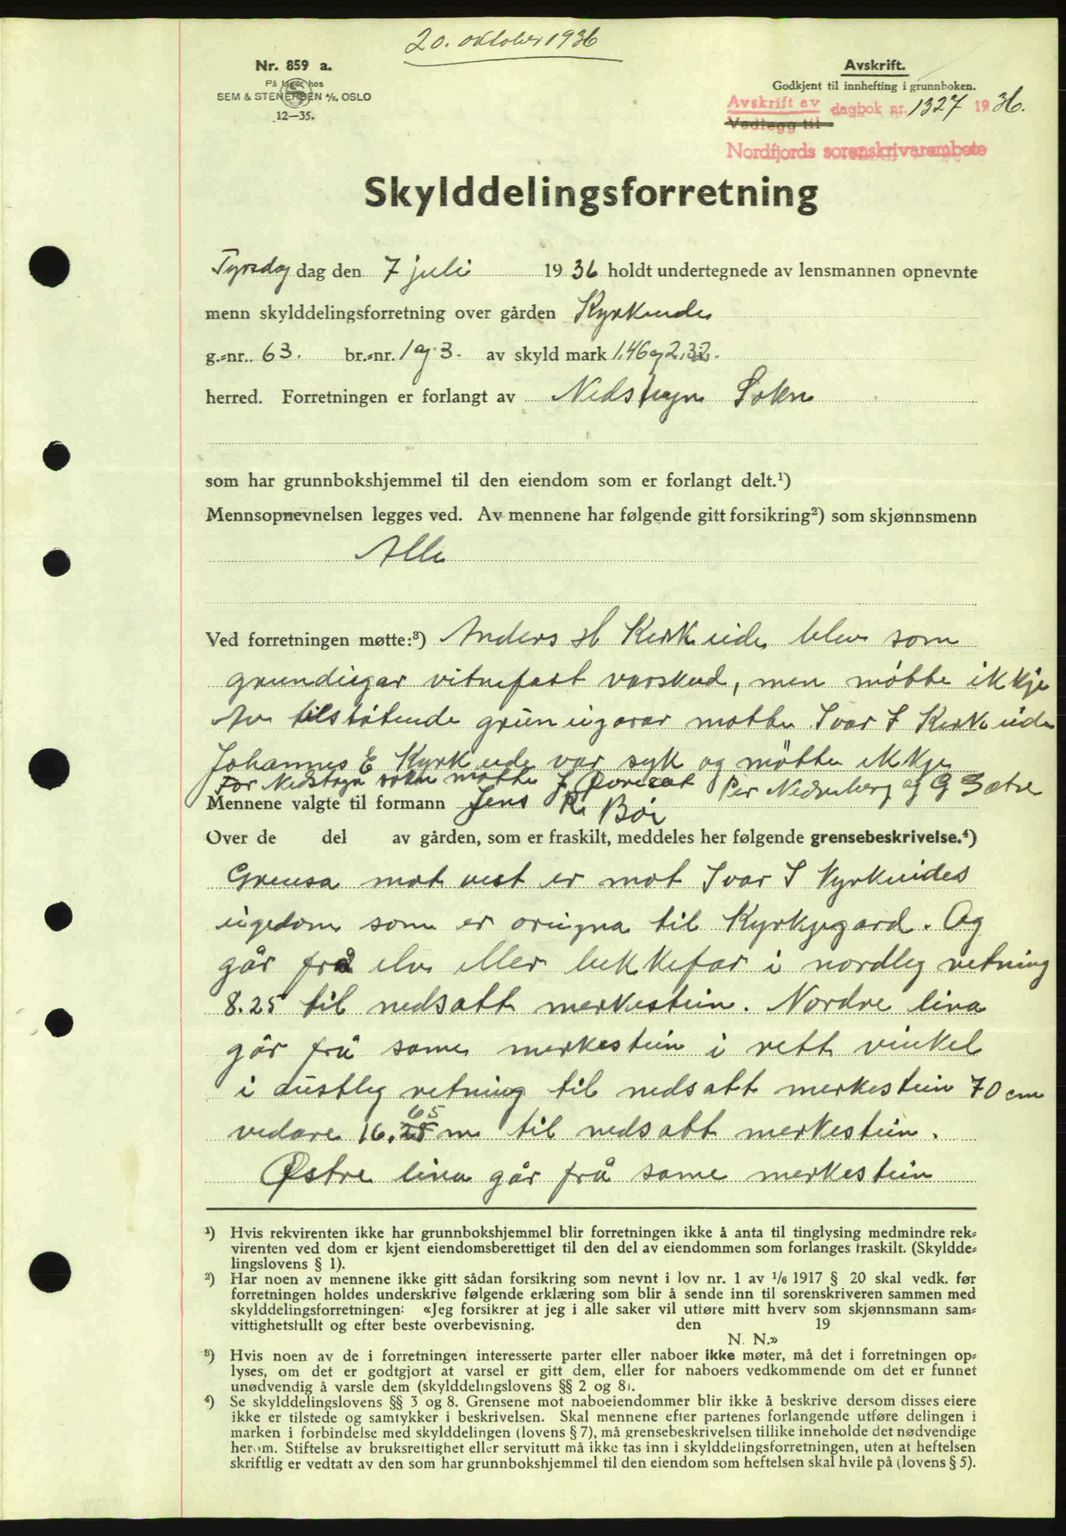 20. oktober 1936
Nr. 859 a.
På lager hos
SEM & STENERSEN A/S, OSLO
12—35.
Avskrift.
Godkjent til innhefting i grunnboken.
Avskrift av dagbok nr. 1327 1936.
Vedlegg til
Nordfjords sorenskrivarembete
Skylddelingsforretning
Tyrsdag dag den 7 juli 1936 holdt undertegnede av lensmannen opnevnte
menn skylddelingsforretning over gården Kyrkeide
g.-nr. 63. br.-nr. 1 og 3. av skyld mark 1,46 og 2,32.
herred. Forretningen er forlangt av Nedstryn Sokn
som har grunnbokshjemmel til den eiendom som er forlangt delt.¹)
Mennsopnevnelsen legges ved. Av mennene har følgende gitt forsikring²) som skjønnsmenn
Alle
Ved forretningen møtte:³) Anders H Kirkeide blev som
grundeigar vitnefast varskud, men møtte ikkje
Av tilstøtende gruneigarar møtte Ivar I Kirkeide
Johannes E Kyrkeide var syk og møtte ikkje
For Nedstryn sokn møtte J. Per Nedreberg og G Sætre
Mennene valgte til formann Jens R. Bøi
Over de del av gården, som er fraskilt, meddeles her følgende grensebeskrivelse.⁴)
Grensa mot vest er mot Ivar I Kyrkeides
eigedom som er til Kyrkjegard. Og
går frå elv eller bekkefar i nordleg retning
8.25 til nedsatt merkestein. Nordre lina
går frå same merkestein i rett vinkel
i austleg retning til nedsatt merkestein 70 cm
65
vedare 16,25 m til nedsatt merkestein.
Østre lina går frå same merkestein
¹) Hvis rekvirenten ikke har grunnbokshjemmel blir forretningen ikke å anta til tinglysing medmindre rek-
virenten ved dom er kjent eiendomsberettiget til den del av eiendommen som forlanges fraskilt. (Skyldde-
lingslovens § 1).
²) Har noen av mennene ikke gitt sådan forsikring som nevnt i lov nr. 1 av 1/6 1917 § 20 skal vedk. før
forretningen holdes underskrive følgende erklæring som blir å sende inn til sorenskriveren sammen med
skylddelingsforretningen: «Jeg forsikrer at jeg i alle saker vil utføre mitt hverv som skjønnsmann sam-
vittighetsfullt og efter beste overbevisning. den 19
N. N.»
³) Hvis noen av de i forretningen interesserte parter eller naboer ikke møter, må det i forretningen op-
lyses, om det er godtgjort at varsel er gitt dem, eller for naboers vedkommende om det er funnet
unødvendig å varsle dem (skylddelingslovens §§ 2 og 8).
⁴) Se skylddelingslovens §§ 3 og 8. Grensene mot naboeiendommer blir ikke å beskrive dersom disses eiere
ikke er tilstede og samtykker i beskrivelsen. Skal mennene efter partenes forlangende utføre delingen i
marken i forbindelse med skylddelingen (lovens § 7), må grensebeskrivelsen tillike inneholde det nødvendige
herom. Stiftelse av bruksrettighet eller servitutt må ikke tas inn i skylddelingsforretningen, uten at heftelsen
skriftlig er vedtatt av den som har grunnbokshjemmel til den eiendom som heftelsen skal hvile på (lovens § 5).